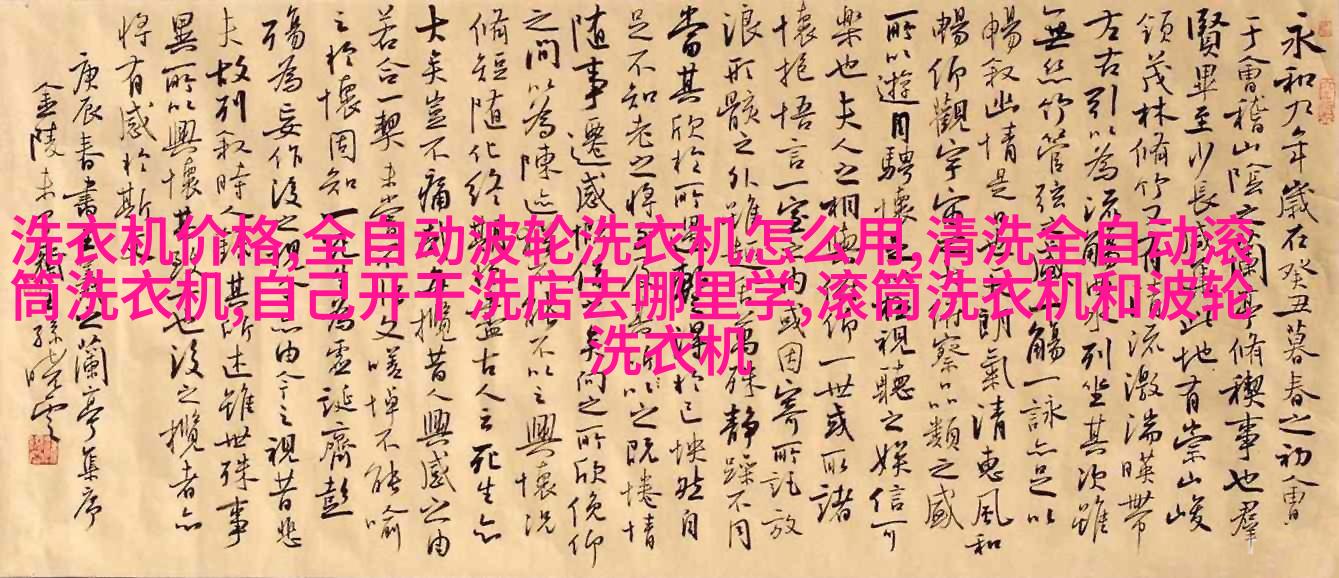 洗衣机价格,全自动波轮洗衣机怎么用,清洗全自动滚
筒洗衣机,自己开干洗店去哪里学,滚筒洗衣机和波轮
洗衣机
永和九年歲在癸丑暮春之初會
于會稽山陰之蘭亭脩禊事也羣
賢畢至少長咸集此地有崇山峻
領茂林脩竹又有清流激湍暎帶
左右引以為流觴曲水列坐其次雖
無絲竹管弦之盛一觴一詠亦足以
暢敘幽情是日也天朗氣清惠風和
暢仰觀宇宙之大俯察品類之盛
所以遊目騁懷足以極視聽之娛信可
樂也夫人之相與俯仰一世或取諸
懷抱悟言一室之內或因寄所託放
浪形骸之外雖趣舍萬殊靜躁不同
當其欣於所遇暫得於己怏然自
足不知老之將至及其所之既惓情
隨事遷感慨係之矣向之所欣俛仰
之間以為陳迹猶不能不以之興懷況
脩短隨化終期於盡古人云死生亦
大矣豈不痛哉每攬昔人興感之由
若合一契未嘗不臨文嗟悼不能喻
之於懷固知一死生為虛誕齊彭
殤為妄作後之視今亦由今之視昔悲
夫故列敘時人錄其所述雖世殊事
異所以興懷其致一也後之攬者亦
將有感於斯文
庚辰春書王羲之蘭亭集序
金陵孫曉雲